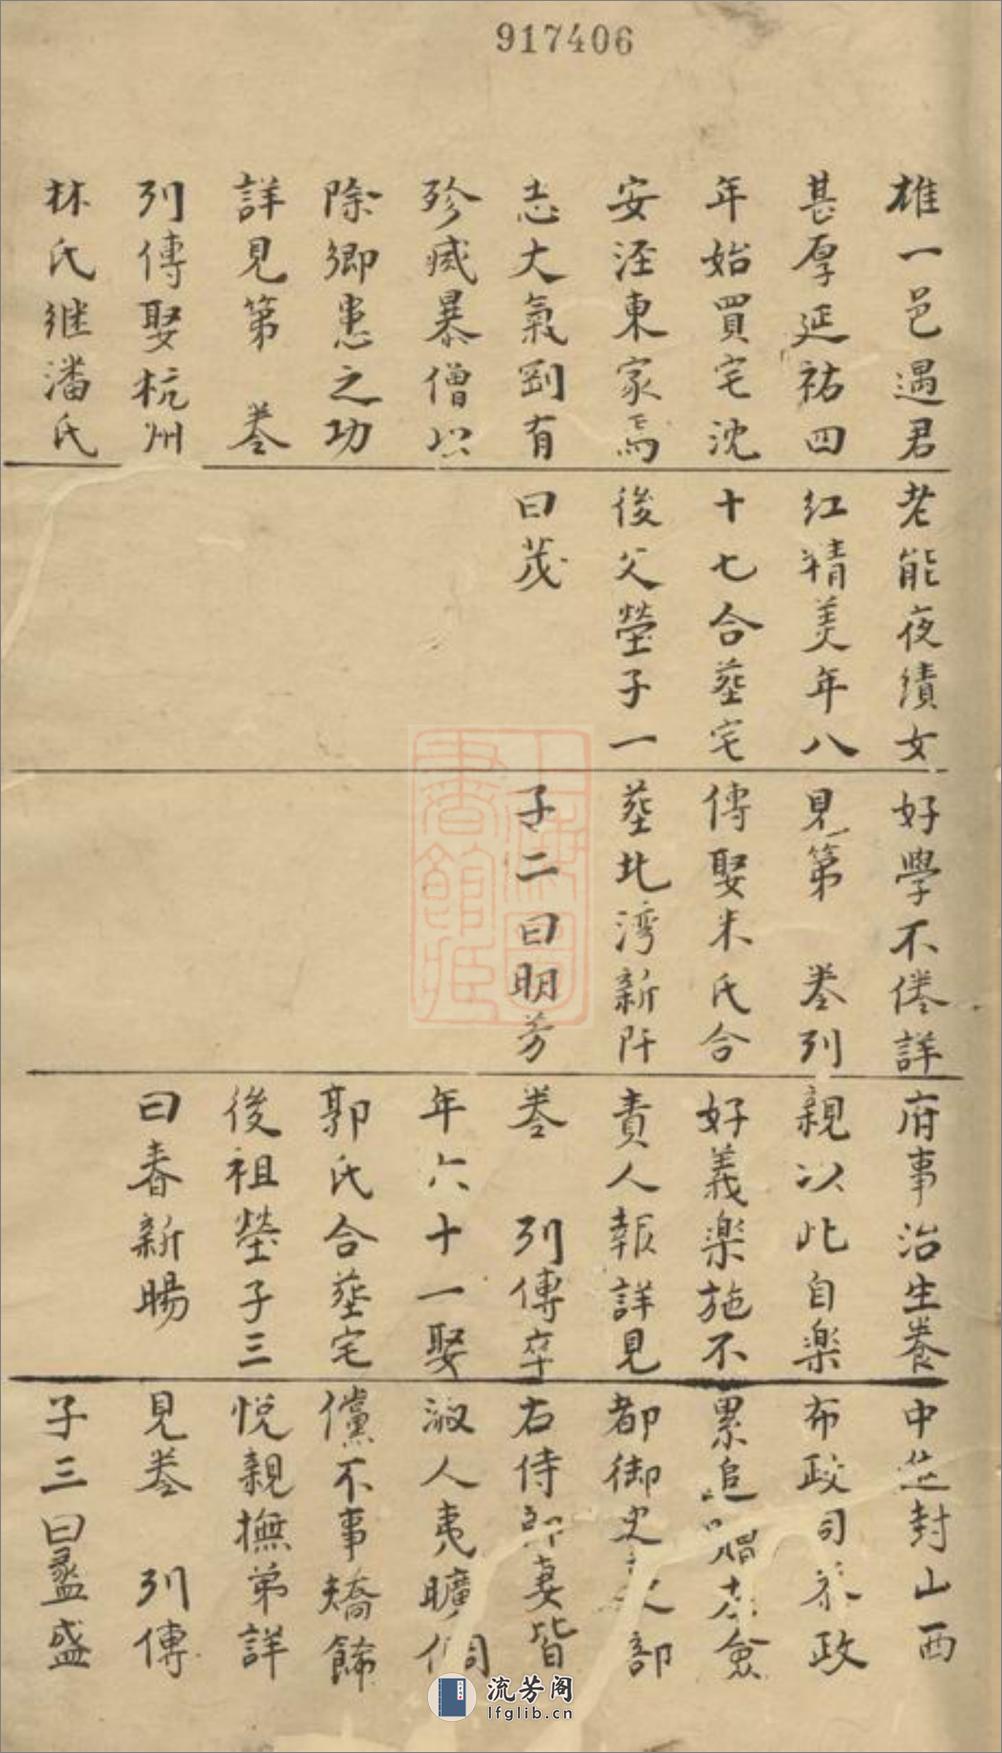 917406
雄一邑遇君
甚厚延祐四
年始買宅沈
安涇東家焉
志大氣剛有
殄滅暴僧以
除鄉患之功
詳見第 卷
列傳娶杭州
林氏継潘氏
老能夜績女
红精美年八
十七合塟宅
後父塋子一
曰茂
好學不倦詳
見第 卷列
傳娶朱氏合
塟北湾新阡
子二曰明芳
府事治生養
親以此自楽
好義楽施不
責人報詳見
卷 列傳卒
年六十一娶
郭氏合塟宅
後祖塋子三
曰春新暘
中生封山西
布政司 政
累追 僉
都御史 部
右侍郎妻皆
淑人夷曠倜
儻不事矯餙
悦親撫弟詳
見卷 列傳
子三曰盝盛
上海圖書館藏
流芳阁
lfglib.cn